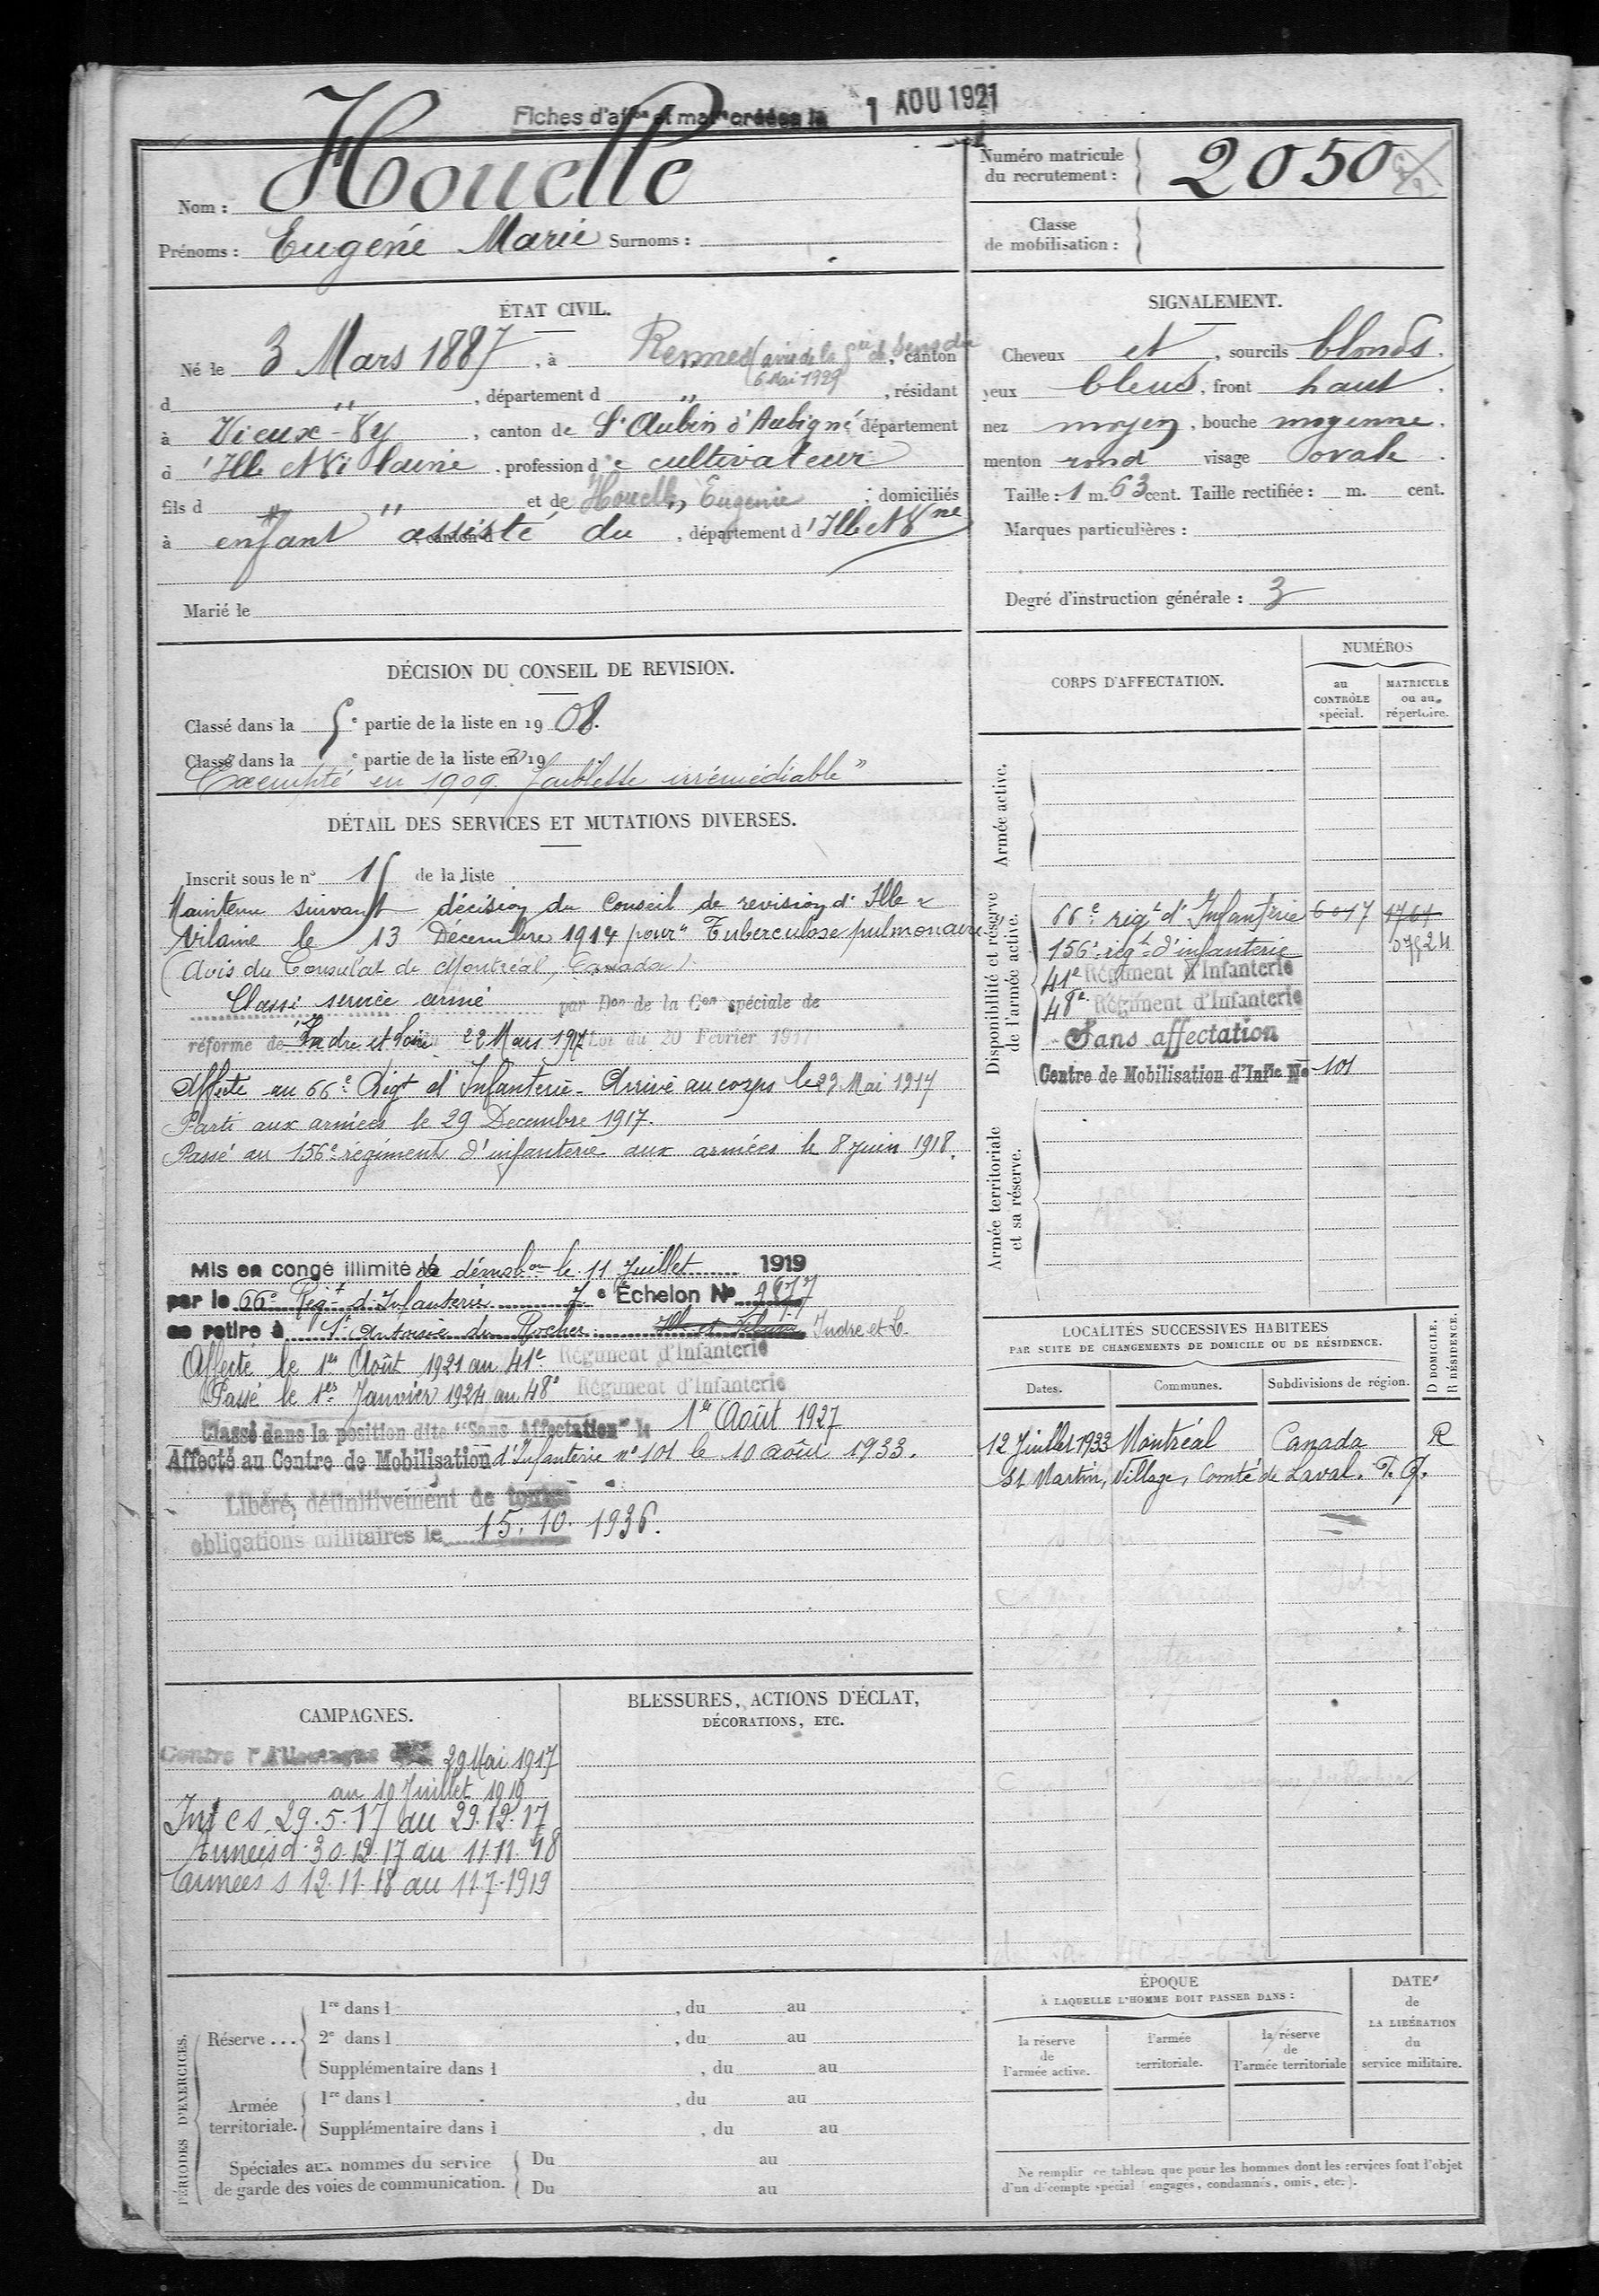 Fiches d'affon et matre créées le 1 AOU 1921
Nom : Houelle
Prénoms : Eugène Marie Surnoms :
Numéro matricule
du recrutement : 2050
Classe
de mobilisation :
ÉTAT CIVIL.
Né le 3 Mars 1887, à Rennes (avis de la Gie de Sens du
6 Mai 1929 , canton
d " , département d " , résidant
à Vieux-Vy , canton de St Aubin d'Aubigné département
d 'Ille et Vilaine , profession de cultivateur
fils d " et de Houelle, Eugenie ; domiciliés
à enfant assisté du , canton d , département d'Ille et Vne
Marié le
SIGNALEMENT.
Cheveux et , sourcils blonds.
yeux bleus, front haut.
nez moyen, bouche moyenne.
menton rond visage ovale.
Taille : 1 m. 63 cent. Taille rectifiée : m. cent.
Marques particulières :
Degré d'instruction générale : 3
DÉCISION DU CONSEIL DE REVISION.
Classé dans la 5e partie de la liste en 1908.
Classé dans la e partie de la liste en 19
Exempté en 1909. faiblesse irrémédiable"
DÉTAIL DES SERVICES ET MUTATIONS DIVERSES.
Inscrit sous le no 15 de la liste
Maintenu suivant décision du Conseil de revision d' Ille &
Vilaine le 13 Décembre 1914 pour "Tuberculose pulmonaire
(Avis du Consulat de Montréal, Canada)
Classé service armé par Don de la Con spéciale de
réforme de Indre et Loire 22 Mars 1917 Loi du 20 Février 1917
Affecté au 66e Rigt d'Infanterie. Arrivé au corps le 29 Mai 1917
Parti aux armées le 29 Decembre 1917.
Passé au 156e régiment d'infanterie aux armées le 8 juin 1918.
Mis en congé illimité de démobon le 11 Juillet 1919
par le 66e Régt d'Infanterie 7e Echelon No 2877
se retire à St Antoine du Rocher Ille et Vilaine Indre et L.
Affecté le 1er Août 1921 au 41e Régiment d'Infanterie
Passé le 1er Janvier 1924 au 48e Régiment d'Infanterie
Classé dans la position dite "Sans Affectation" le 1er Août 1927
Affecté au Centre de Mobilisation d'Infanterie no 101 le 10 août 1933.
Libéré définitivement de toutes
obligations militaires le 15.10.1936.
CORPS D'AFFECTATION.
NUMÉROS
au
CONTRÔLE
spécial.
MATRICULE
ou au
répertoire.
Armée active.
Disponibilité et réserve
de l'armée active.
66e rigt d'Infanterie 6017 1761
156e régt d'infanterie
41e Régiment d'Infanterie
48e Régiment d'Infanterie
Sans affectation
Centre de Mobilisation d'Infie No 101
Armée territoriale
et sa réserve.
LOCALITÉS SUCCESSIVES HABITEES
PAR SUITE DE CHANGEMENTS DE DOMICILE OU DE RÉSIDENCE.
Dates. Communes. Subdivisions de région.
D DOMICILE.
R RÉSIDENCE.
12 Juillet 1933 Montréal Canada R
St Martin, Village, Comté de Laval. P. Q.
CAMPAGNES.
Contre l'Allemagne du 29 Mai 1917
au 10 Juillet 1919
Int c s 29.5.17 au 29.12.17
Armées d. 30.12.17 au 11.11.18
armées s 12.11.18 au 11.7.1919
BLESSURES, ACTIONS D'ÉCLAT,
DÉCORATIONS, ETC.
PÉRIODES D'EXERCICES.
Réserve ... 1re dans l , du au
2e dans l , du au
Supplémentaire dans l , du au
Armée
territoriale. 1re dans l , du au
Supplémentaire dans l , du au
Spéciales aux hommes du service
de garde des voies de communication.
Du au
Du au
ÉPOQUE
À LAQUELLE L'HOMME DOIT PASSER DANS :
la réserve
de
l'armée active.
l'armée
territoriale.
la réserve
de
l'armée territoriale
DATE
de
LA LIBÉRATION
du
service militaire.
Ne remplir ce tableau que pour les hommes dont les services font l'objet
d'un décompte spécial (engagés, condamnés, omis, etc.).